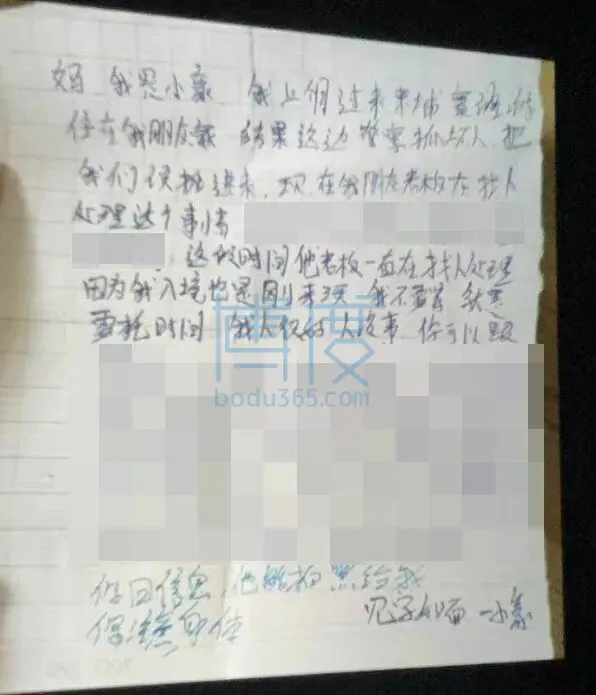 妈 我是小豪 我上个过来柬埔寨
住在我朋友家 结果这边警察抓坏人 把
我们误抓进来 现在我朋友老板在找人
处理这个事情
这段时间他老板一直在找人处理
因为我入境也是刚来3天 我不 就是
要耗时间 我 人没事 你可以跟
博度
bodu365.com
你回信息 他能拍照给我
见字如面 -小豪
注意身体